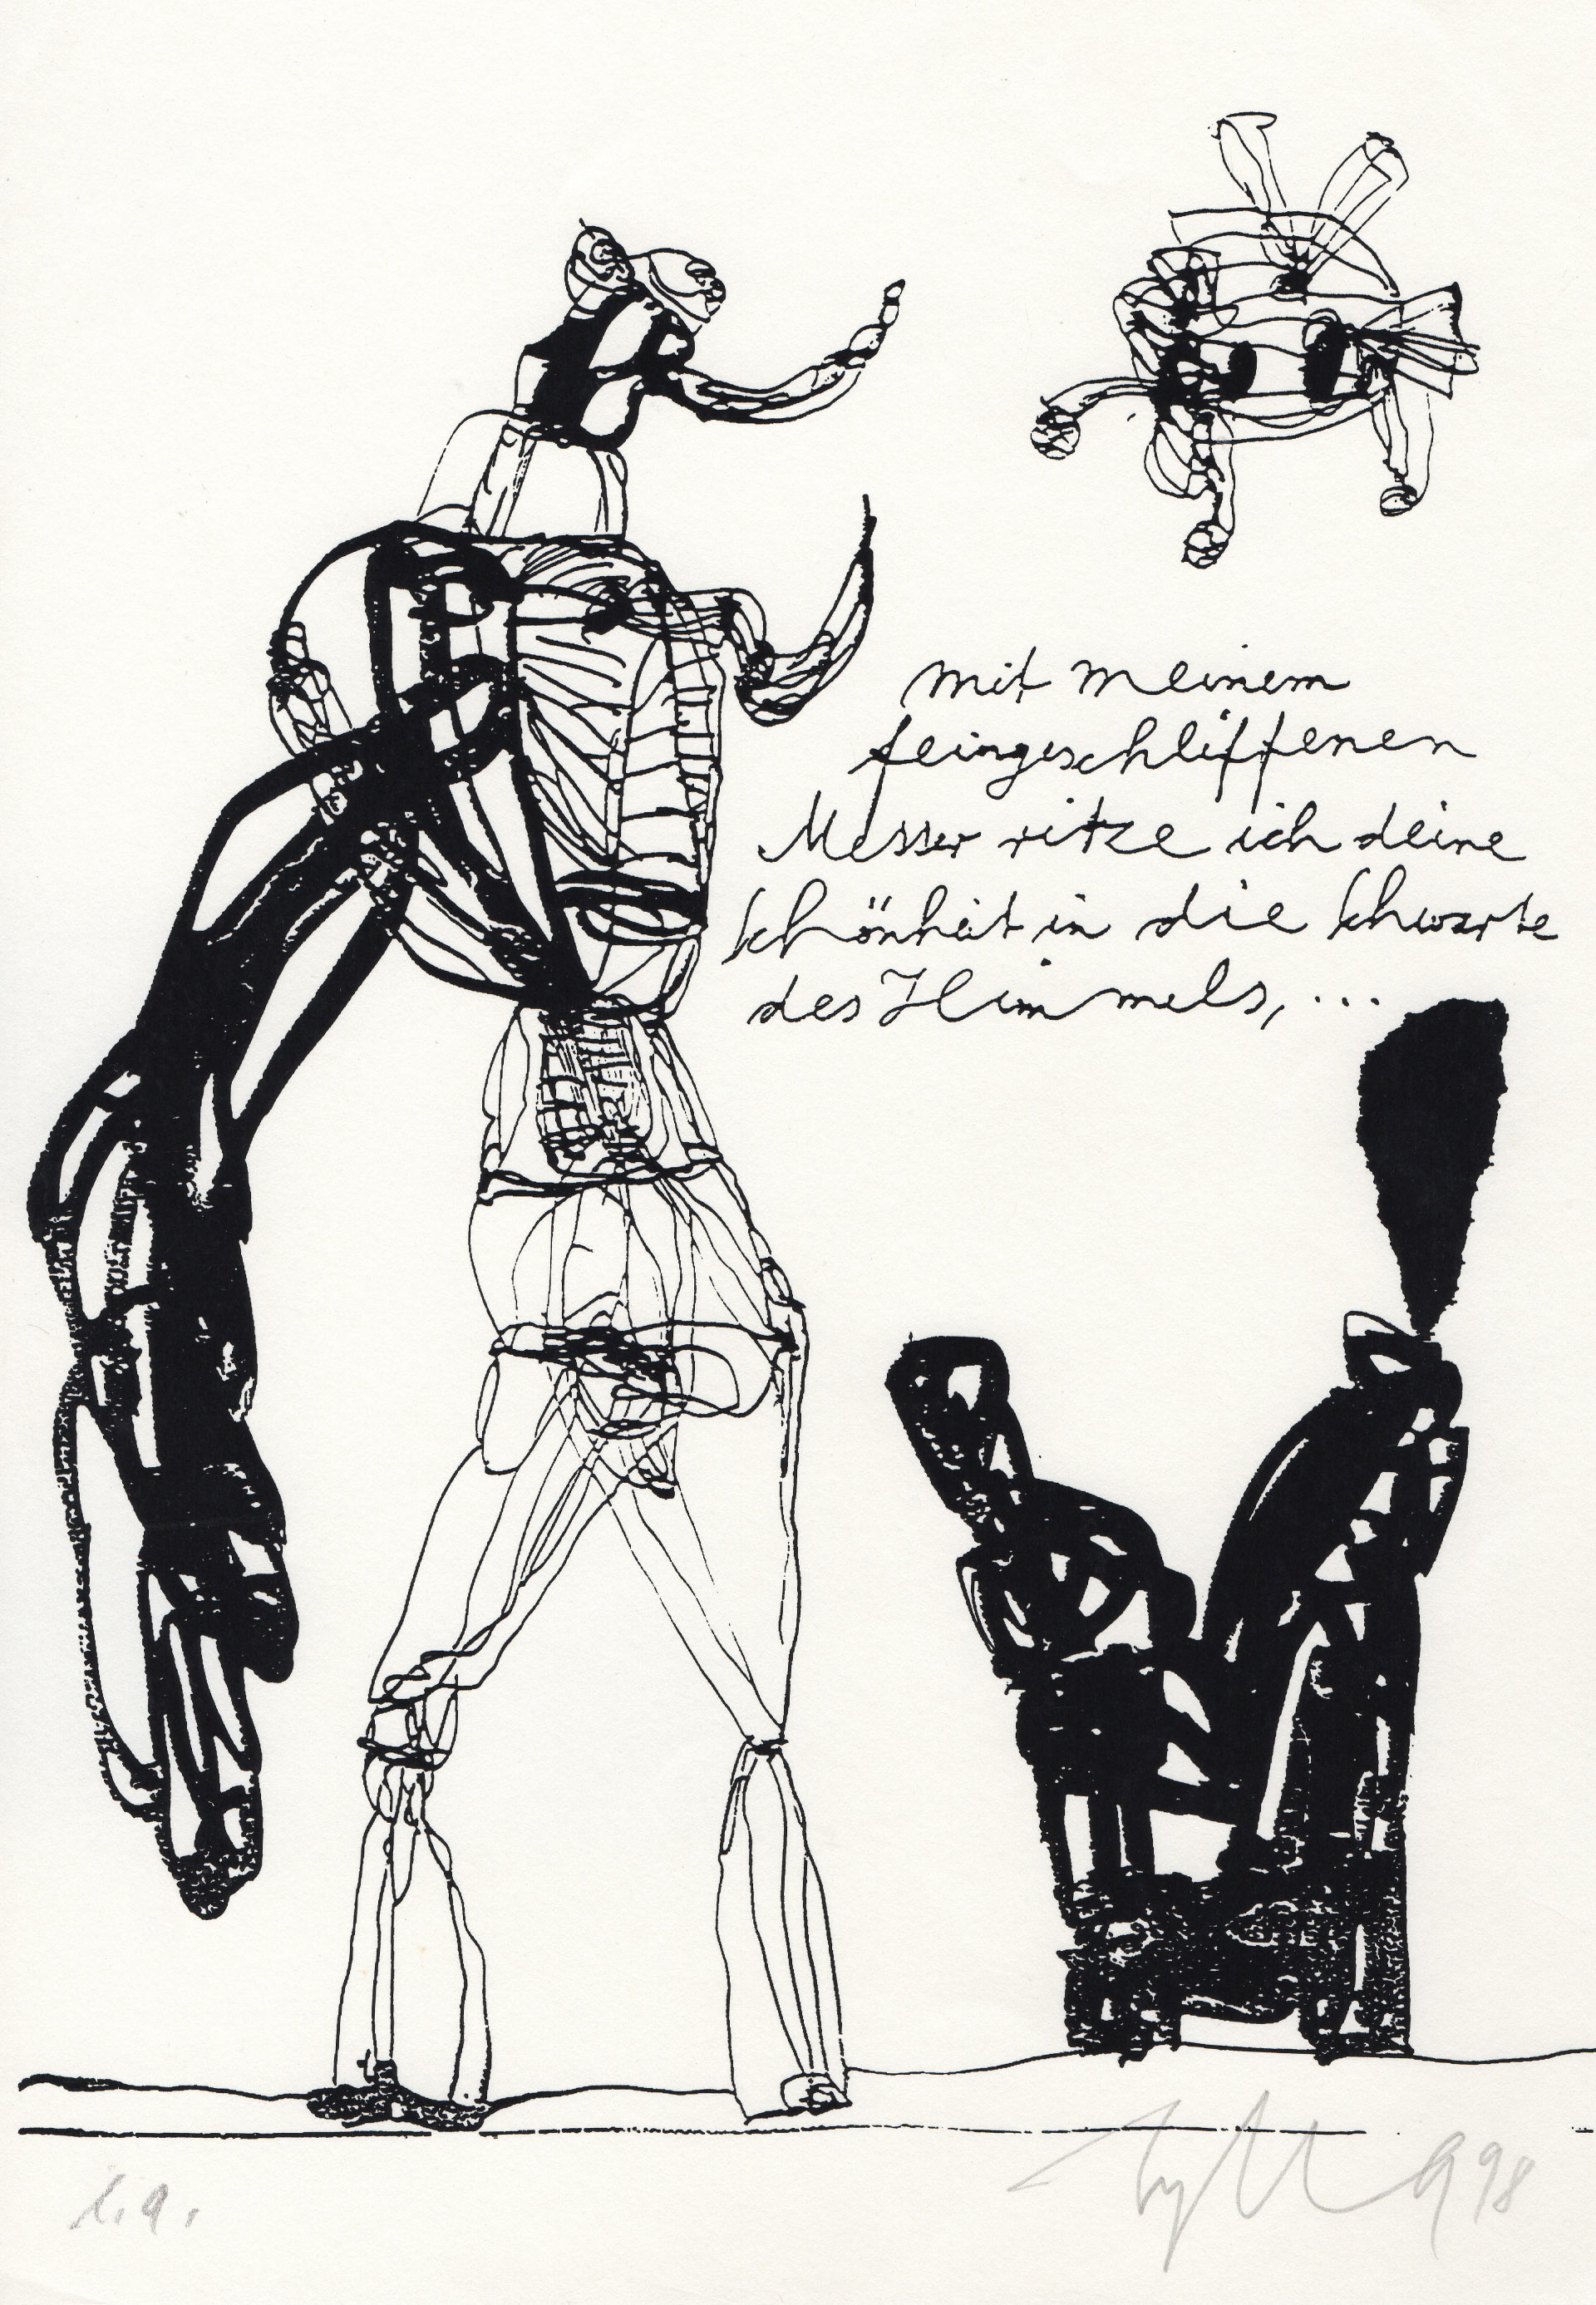 mit meinem
feingeschliffenen
Messer ritze ich deine
Schönheit in die Schwarte
des Himmels, ...
e.a.
998